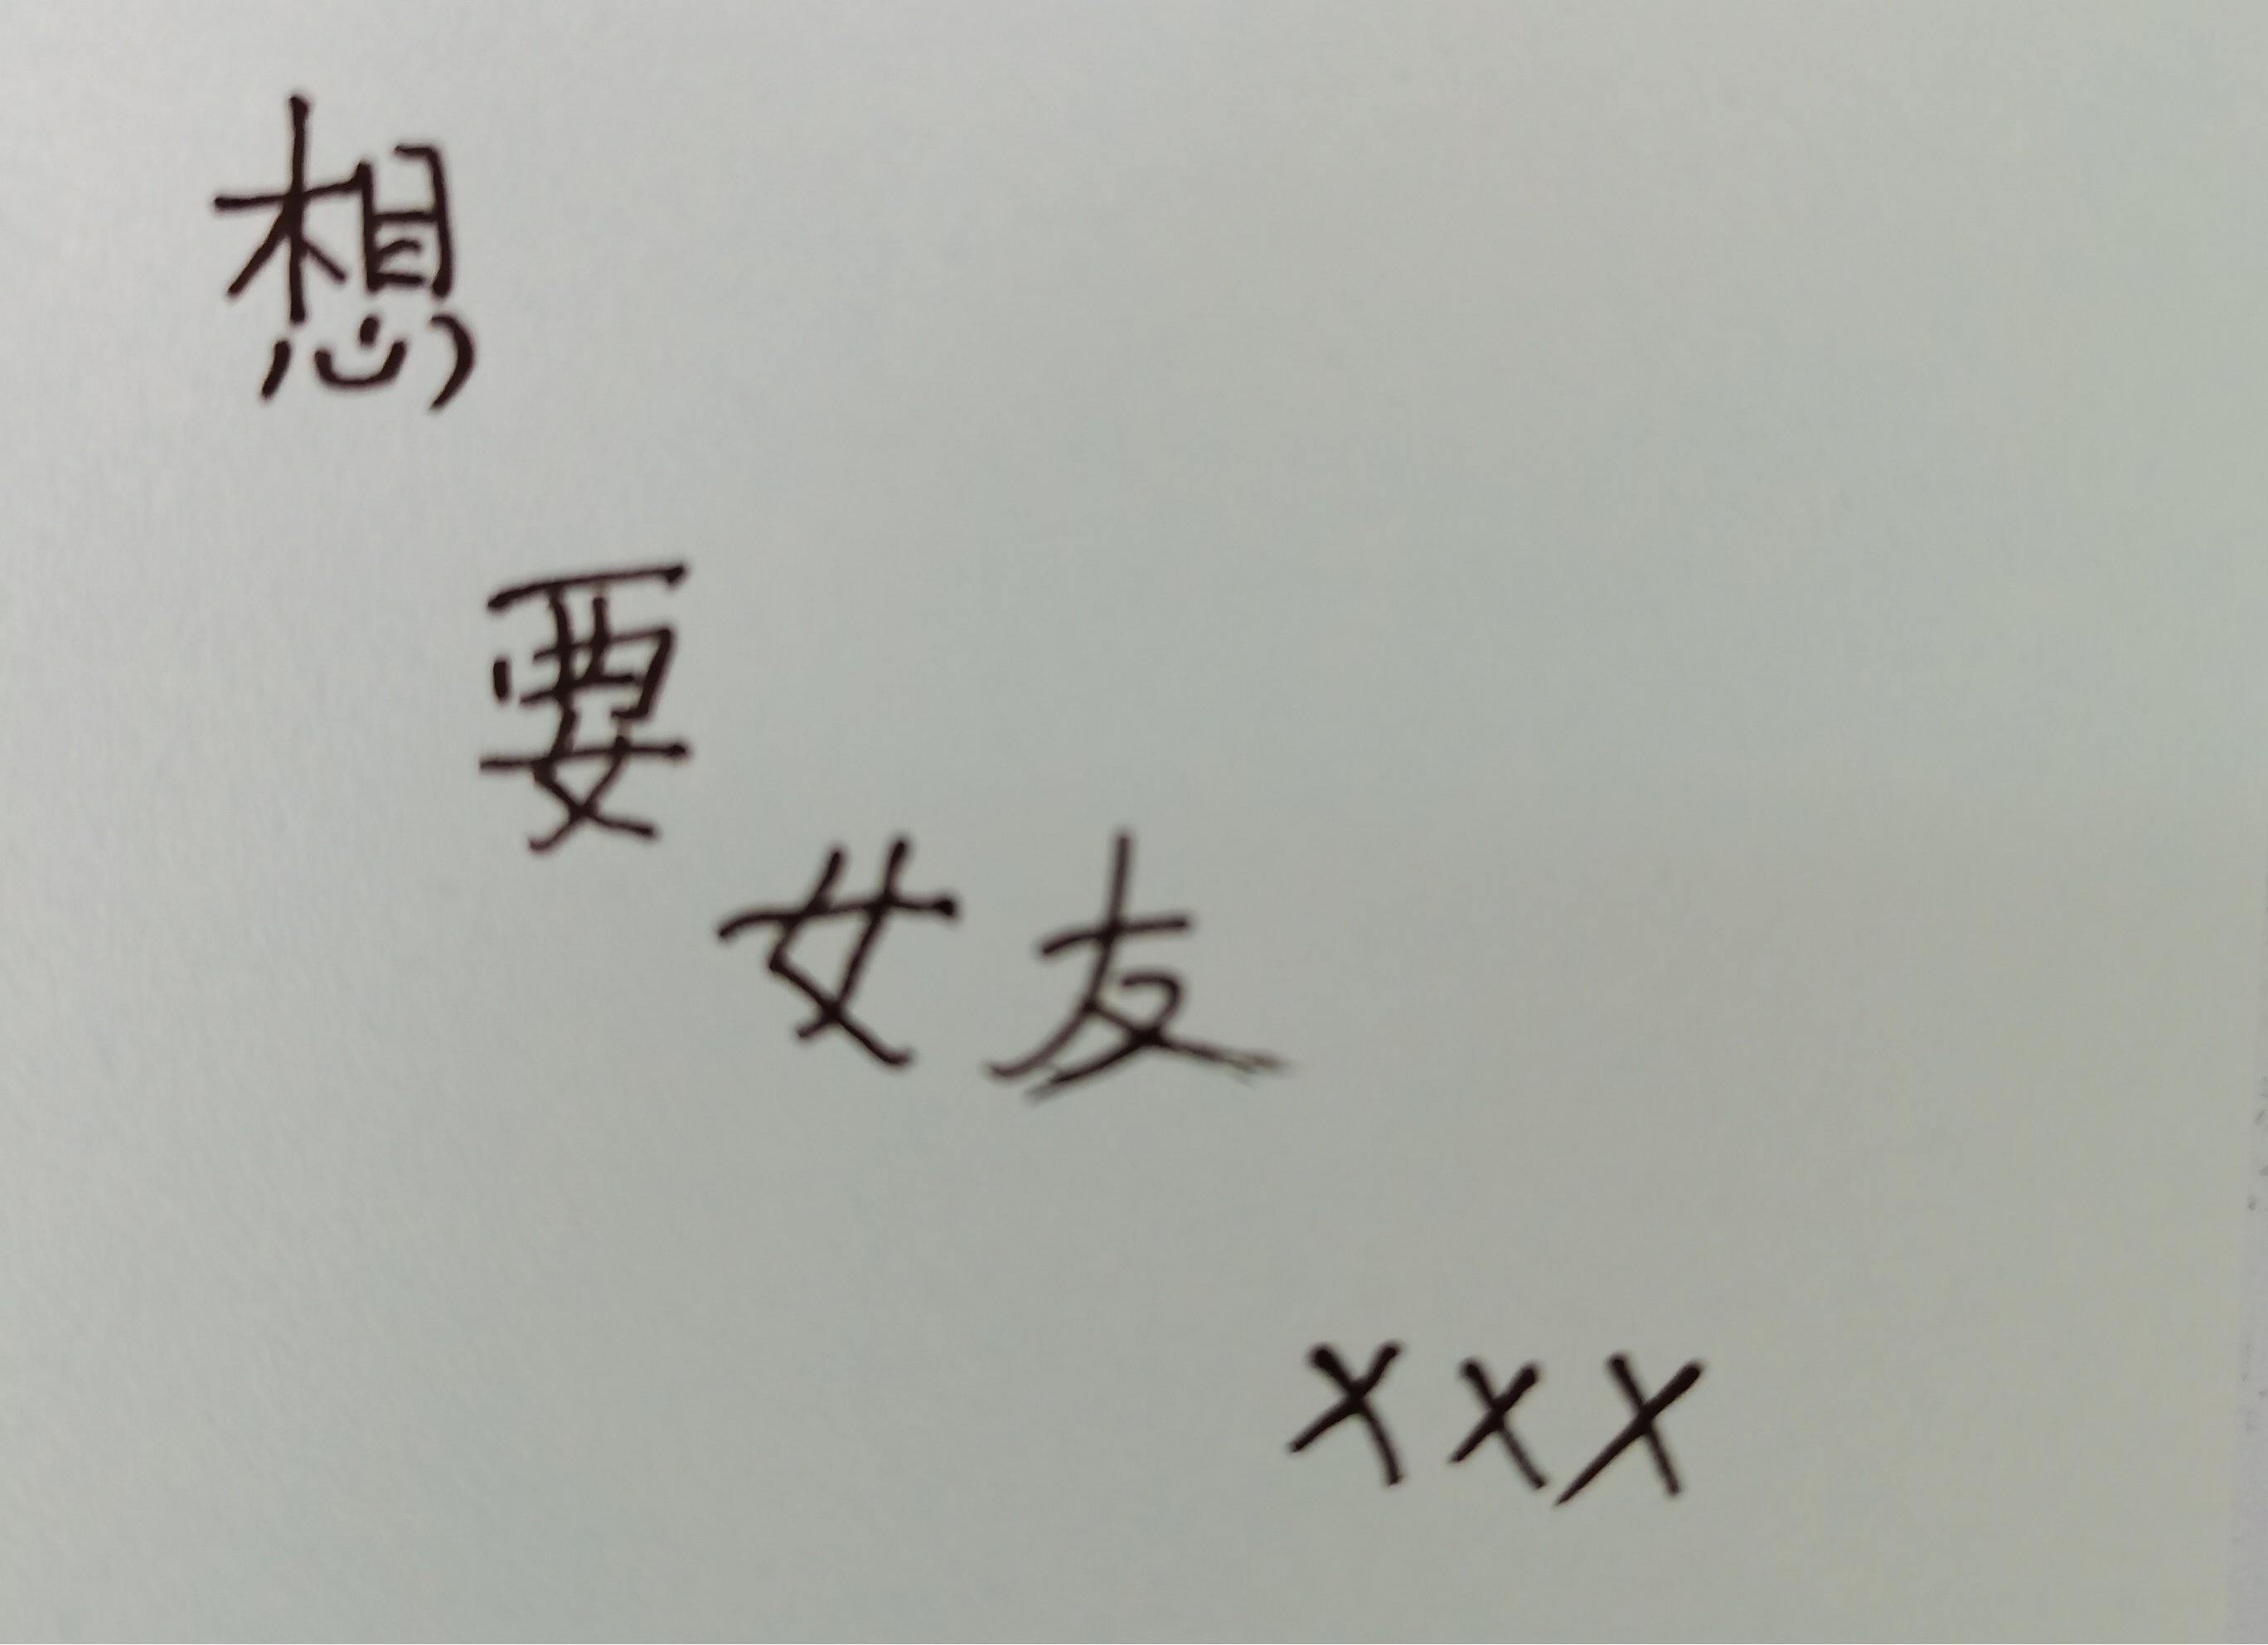 想
要
女友
xxx